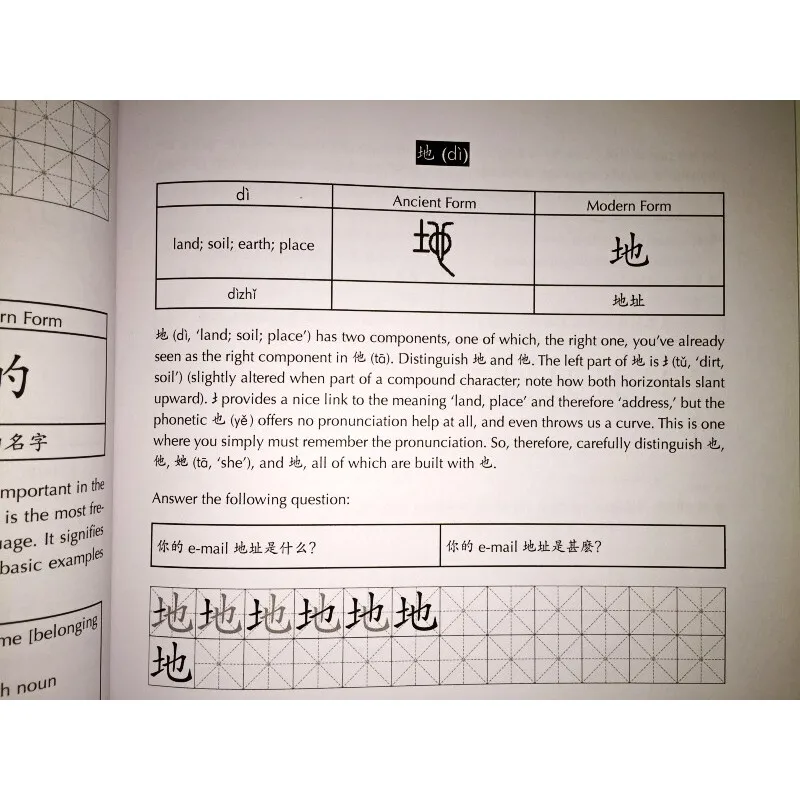 rn Form
的
名字
mportant in the
is the most fre-
uage. It signifies
basic examples
me [belonging
h noun
地 (dì)
dì
Ancient Form
Modern Form
land; soil; earth; place
地
dìzhǐ
地址
地 (dì, ‘land; soil; place’) has two components, one of which, the right one, you’ve already
seen as the right component in 他 (tā). Distinguish 地 and 他. The left part of 地 is 土 (tǔ, ‘dirt,
soil’) (slightly altered when part of a compound character; note how both horizontals slant
upward). 土 provides a nice link to the meaning ‘land, place’ and therefore ‘address,’ but the
phonetic 也 (yě) offers no pronunciation help at all, and even throws us a curve. This is one
where you simply must remember the pronunciation. So, therefore, carefully distinguish 也,
他, 她 (tā, ‘she’), and 地, all of which are built with 也.
Answer the following question:
你的 e-mail 地址是什么?
你的 e-mail 地址是甚麼?
地 地 地 地 地 地
地